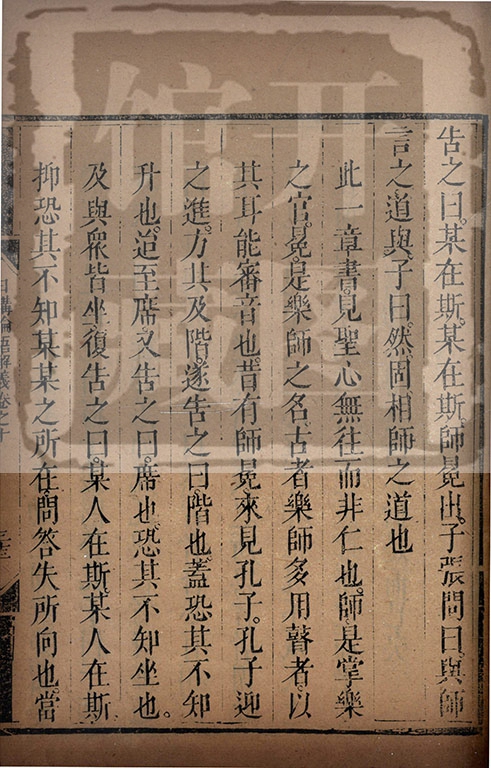 告之曰某在斯某在斯師冕出子張問曰與師
言之道與子曰然固相師之道也
此一章書見聖心無往而非仁也師是掌樂
之官冕是樂師之名古者樂師多用瞽者以
其耳能審音也昔有師冕來見孔子孔子迎
之進方其及階遂告之曰階也蓋恐其不知
升也迨至席又告之曰席也恐其不知坐也
及與衆皆坐復告之曰某人在斯某人在斯
抑恐其不知某某之所在問答失所向也當
日講論語解義卷之十